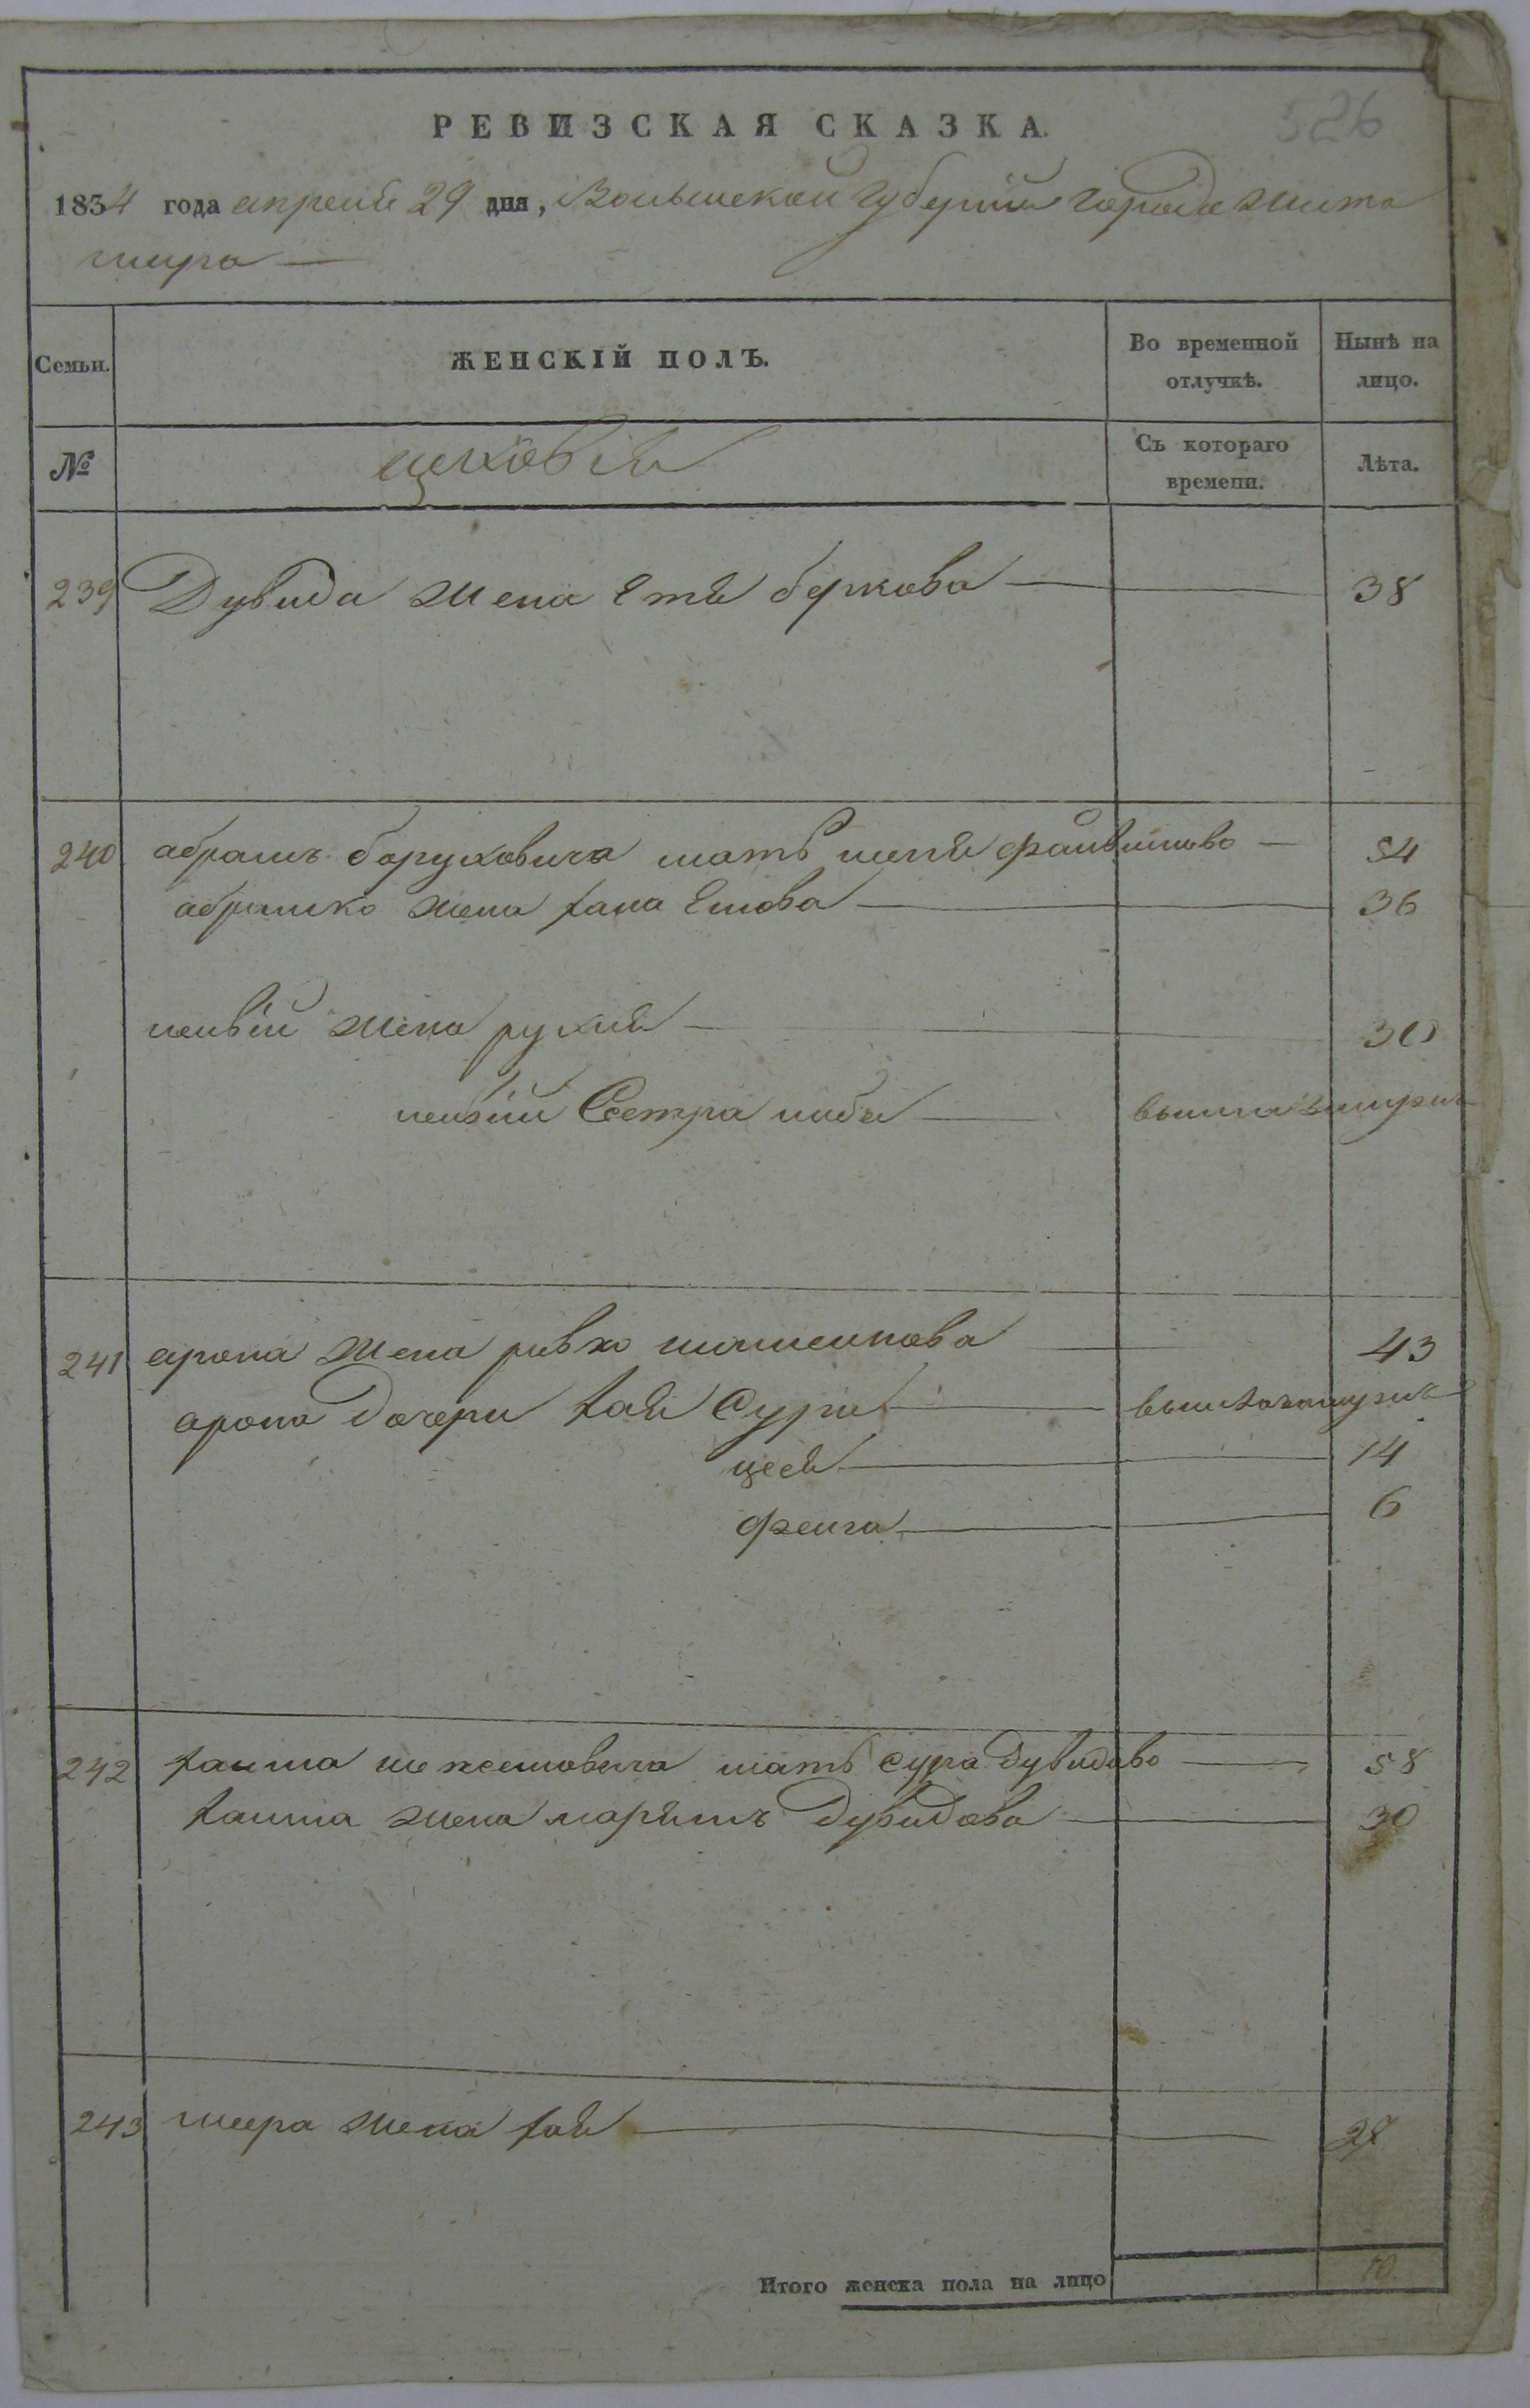 526
РЕВИЗСКАЯ СКАЗКА.
1834 года апреля 29 дня, Волынской губернии города Жито
мира
Семьи.
ЖЕНСКІЙ ПОЛЪ.
Во временной отлучкѣ.
Нынѣ на лицо.
№
цеховіи
Съ котораго времени.
Лѣта.
239 Дувида жена Етя беркова 38
240 абрамъ боруховича мать файвишова 54
абрамко жена хана 36
лейвіи жена рухля 30
лейвіи Сестра либа вышла замужъ
241 арона жена ривхо 43
арона дочери хая Сура замужъ
цея 14
фейга 6
242 хаима мать сура дувидово 58
хаима жена марямъ дувидова 30
243 меера жена хая 27
Итого женска пола на лицо 10.